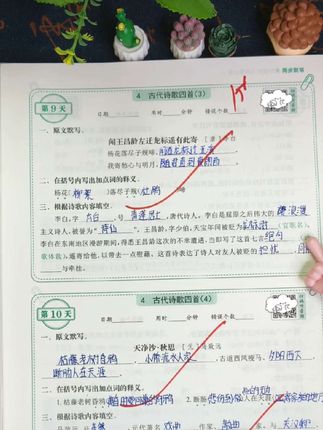 同步默写
第9天
4 古代诗歌四首(3)
日期 用时 分钟 错误个数
一、原文默写。
闻王昌龄左迁龙标遥有此寄 [唐]李白
杨花落尽子规啼,闻道龙标过五溪。
我寄愁心与明月,随君直到夜郎西。
二、在括号内写出加点词的释义。
杨花(柳絮)落尽子规(杜鹃)啼
三、根据诗歌内容填空。
李白,字太白,号青莲居士,唐代诗人。李白是屈原之后伟大的浪漫
主义诗人,被誉为“诗仙”。王昌龄,字少伯,天宝年间被贬为龙标尉(官职名)。
李白在东南地区漫游期间,得悉王昌龄这次的不幸遭遇,当即写了这首七言绝句(诗
歌体裁),遥寄给他,以资去一点慰藉,这首诗表达了诗人对友人被贬的担忧、同情
与牵挂。
第10天
4 古代诗歌四首(4)
日期 用时 分钟 错误个数
一、原文默写。
天净沙·秋思 [元]马致远
枯藤老树昏鸦,小桥流水人家,古道西风瘦马。夕阳西下,
断肠人在天涯。
二、在括号内写出加点词的释义。
1.枯藤老树昏鸦 2.断肠 人在天涯
三、根据诗歌内容填空。